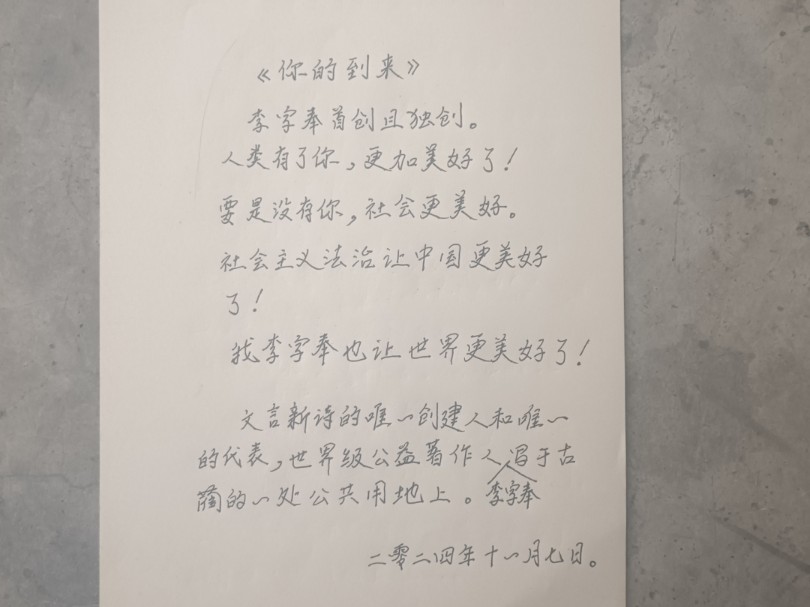 《你的到来》
李字奉首创且独创。
人类有了你,更加美好了!
要是没有你,社会更美好。
社会主义法治让中国更美好
了!
我李字奉也让世界更美好了!
文言新诗的唯一创建人和唯一
的代表,世界级公益著作人李字奉写于古
蔺的一处公共用地上。
二零二四年十一月七日。